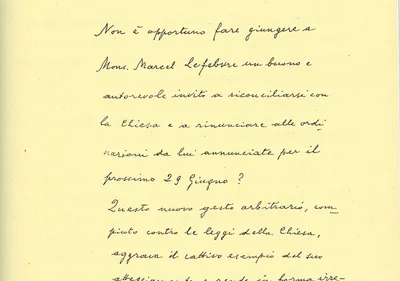 Non è opportuno fare giungere a
Mons. Marcel Lefebvre un buono e
autorevole invito a riconciliarsi con
la Chiesa e a rinunciare alle ordi-
nazioni da lui annunciate per il
prossimo 29 Giugno?
Questo nuovo gesto arbitrario, com-
piuto contro le leggi della Chiesa,
aggrava il cattivo esempio del suo
atteggiamento e rende in forma irre-